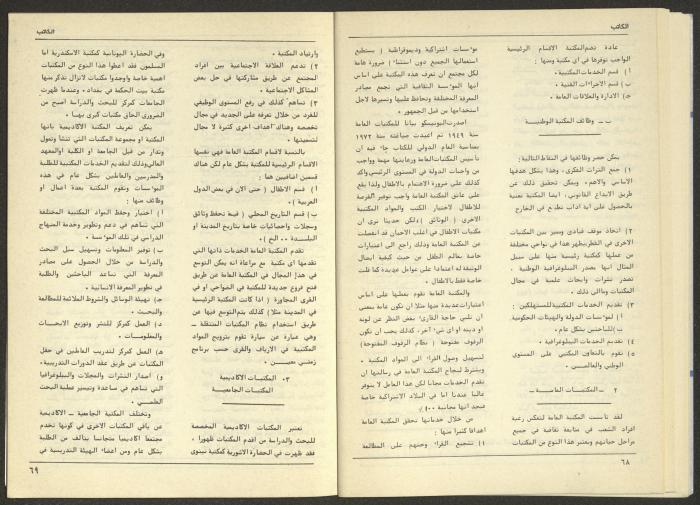 الكاتب
عادة تضم المكتبة الاقسام الرئيسية
الواجب توفرها في اي مكتبة ومنها :
أ) قسم الخدمات المكتبية .
ب) قسم الاجراءات الفنية .
ج) الادارة والعلاقات العامة .
ب ـ وظائف المكتبة الوطنية
يمكن حصر وظائفها في النقاط التالية :
١) جمع التراث الفكري ، وهذا يشكل هدفها
الاساسي والاهم ، ويمكن تحقيق ذلك عن
طريق الايداع القانوني ، ايضا المكتبة معنية
بالحصول على اية اداب تطبع في الخارج
٢) اتخاذ موقف قيادي ومميز بين المكتبات
الاخرى في القطر يظهر هذا في نواحي مختلفة
من عملها كمكتبة رئيسة منها على سبيل
المثال انها بصدر الببلوغرافية الوطنية ،
تصدر نشرات وابحاث علمية في مجال
المكتبات وما الى ذلك .
٣) تقديم الخدمات المكتبية للمستهلكين :
أ) لمؤسسات الدولة والهيئات الحكومية
ب) للباحثين بشكل عام .
٤) تقديم الخدمات الببلوغرافية .
٥) تقوم بالتعاون المكتبي على المستوى
الوطني والعالمي .
٢ ـ المكتبات العامة ـ
لقد تأسست المكتبة العامة لتعكس رغبة
افراد الشعب في متابعة ثقافية في جميع
مراحل حياتهم ويعتبر هذا النوع من المكتبات
مؤسسات اشتراكية وديموقراطية ( يستطيع
استعمالها الجميع دون استثناء ) ضرورة هامة
لكل مجتمع ان تعرف هذه المكتبة على اساس
أنها المؤسسة الثقافية التي تجمع مصادر
المعرفة المختلفة وتحافظ عليها وتسيرها لاجل
استخدامها من قبل الجمهور .
اصدرت اليونيسكو بيانا للمكتبات العامة
سنة ١٩٤٩ تم اعيدت صياغته سنة ١٩٧٢
بمناسبة العام الدولي للكتاب جاء فيه ان
تأسيس المكتبات العامة ورعايتها مهما وواجب
من واجبات الدولة في المستوى الرئيسي واكد
كذلك على ضرورة الاهتمام بالاطفال ولذا يقع
على عاتق المكتبة العامة واجب توفير الفرصة
للاطفال لاختيار الكتب والمواد المكتبية
الاخرى ( الوثائق ) ولكن حديثا نرى ان
مكتبات الاطفال في اغلب الاحيان قد انفصلت
عن المكتبة العامة وذلك راجع الى اعتبارات
خاصة بعالم الطفل من حيث كيفية ايصال
الوثيقة له اعتمادا على عوامل عديدة كما ظلت
خاصة فقط بالاطفال .
والمكتبة العامة تقوم بعملها على اساس
اعتبارات عديدة منها مثلا ان تكون عامة بمعنى
ان تلبي حاجة القارئ بغض النظر عن لونه
او دينه او اي شيء آخر ، كذلك يجب ان تكون
الرفوف مفتوحة ( نظام الرفوف المفتوحة)
لتسهيل وصول القراء الى المواد المكتبية .
ويشترط لنجاح المكتبة العامة في رسالتها ان
تقدم الخدمات مجانا لكن هذا العامل لا يتوفر
غالبا عندنا اما في البلاد الاشتراكية خاصة
فنجد انها مجانية ١٠٠٪ .
من خلال خدماتها تحقق المكتبة العامة
اهدافا كثيرا منها :
١) تشجيع القراء وحثهم على المطالعة
٦٨
الكاتب
وارتياد المكتبة .
٢) تدعم العلاقة الاجتماعية بين افراد
المجتمع عن طريق مشاركتها في حل بعض
المشاكل الاجتماعية .
٣) تساهم كذلك في رفع المستوى الوظيفي
للفرد من خلال تعرفه على الجديد في مجال
تخصصه وهناك اهداف اخرى كثيرة لا مجال
لتضمينها .
بالنسبة لاقسام المكتبة العامة فهي نفسها
الاقسام الرئيسية للمكتبة بشكل عام لكن هناك
قسمين اضافيين هما :
أ) قسم الاطفال ( حتى الان في بعض الدول
العربية ) .
ب) قسم التاريخ المحلي ( فيه تحفظ وثائق
وسجلات واحصائيات خاصة بتاريخ المدينة او
البلدة ٠٠ الخ ) .
تقدم المكتبة العامة الخدمات ذاتها التي
تقدمها اي مكتبة مع مراعاة انه يمكن التوسع
في هذا المجال في المكتبة العامة عن طريق
فتح فروع جديدة للمكتبة في الضواحي او في
القرى المجاورة ( اذا كانت المكتبة الرئيسية
في المدينة مثلا ) كذلك يتم التوسع فيها عن
طريق استخدام نظام المكتبات المتنقلة ـ
وهي عبارة عن سيارة تقوم بترويج المواد
المكتبية في الارياف والقرى حسب برنامج
زمني معين .
٣٠ المكتبات الاكاديمية
المكتبات الجامعية
تعتبر المكتبات الاكاديمية المخصصة
للبحث والدراسة من اقدم المكتبات ظهورا ،
فقد ظهرت في الحضارة الاشورية كمكتبة نينوى
وفي الحضارة اليونانية كمكتبة الاسكندرية اما
المسلمون فقد اعطوا هذا النوع من المكتبات
اهمية خاصة واوجدوا مكتبات لانزال نذكر منها
مكتبة بيت الحكمة في بغداد ، وعندما ظهرت
الجامعات كمركز للبحث والدراسة اصبح من
الضروري الحاق مكتبات كبرى بهـا .
يمكن تعريف المكتبة الاكاديمية بانها
المكتبة او مجموعة المكتبات التي تنشأ وتمول
وتدار من قبل الجامعة او الكلية او المعهد
العالي وذلك لتقديم الخدمات المكتبية للطلبة
والمدرسين والعاملين بشكل عام في هذه
المؤسسات وتقوم المكتبة بعدة اعمال او
وظائف منها :
أ) اختيار وحفظ المواد المكتبية المختلفة
التي تساهم في دعم وتطوير وخدمة المنهاج
الدراسي في تلك المؤسسة .
ب) توفير المعلومات وتسهيل سبل البحث
والدراسة من خلال الحصول على مصادر
المعرفة التي تساعد الباحثين والطلبة
في تطوير المعرفة الانسانية .
ج) تهيئة الوسائل والشروط الملائمة للمطالعة
والبحث .
د) العمل كمركز للنشر وتوزيع الابحاث
والمعلومات .
هـ) العمل كمركز لتدريب العاملين في حقل
المكتبات عن طريق عقد الدورات التدريبية .
و) اصدار النشرات والمجلات والببلوغرافيا
التي تساهم في مساعدة وتيسير عملية البحث
العلمي .
وتختلف المكتبة الجامعية ـ الاكاديمية
عن باقي المكتبات الاخرى في كونها تخدم
مجتمعا اكاديميا متجانسا يتألف من الطلبة
بشكل عام ومن اعضاء الهيئة التدريسية في
٦٩